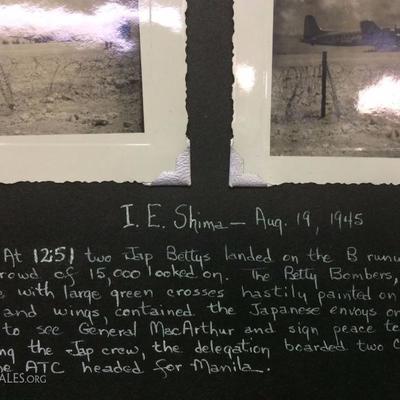 I. E. Shima — Aug. 19, 1945
At 12:51 two Jap Bettys landed on the B
crowd of 15,000 looked on. The Betty Bombers,
with large green crosses hastily painted on
and wings, contained the Japanese envoys
to see General MacArthur and sign peace
the Jap crew, the delegation boarded two
ATC headed for Manila.
ALES.ORG